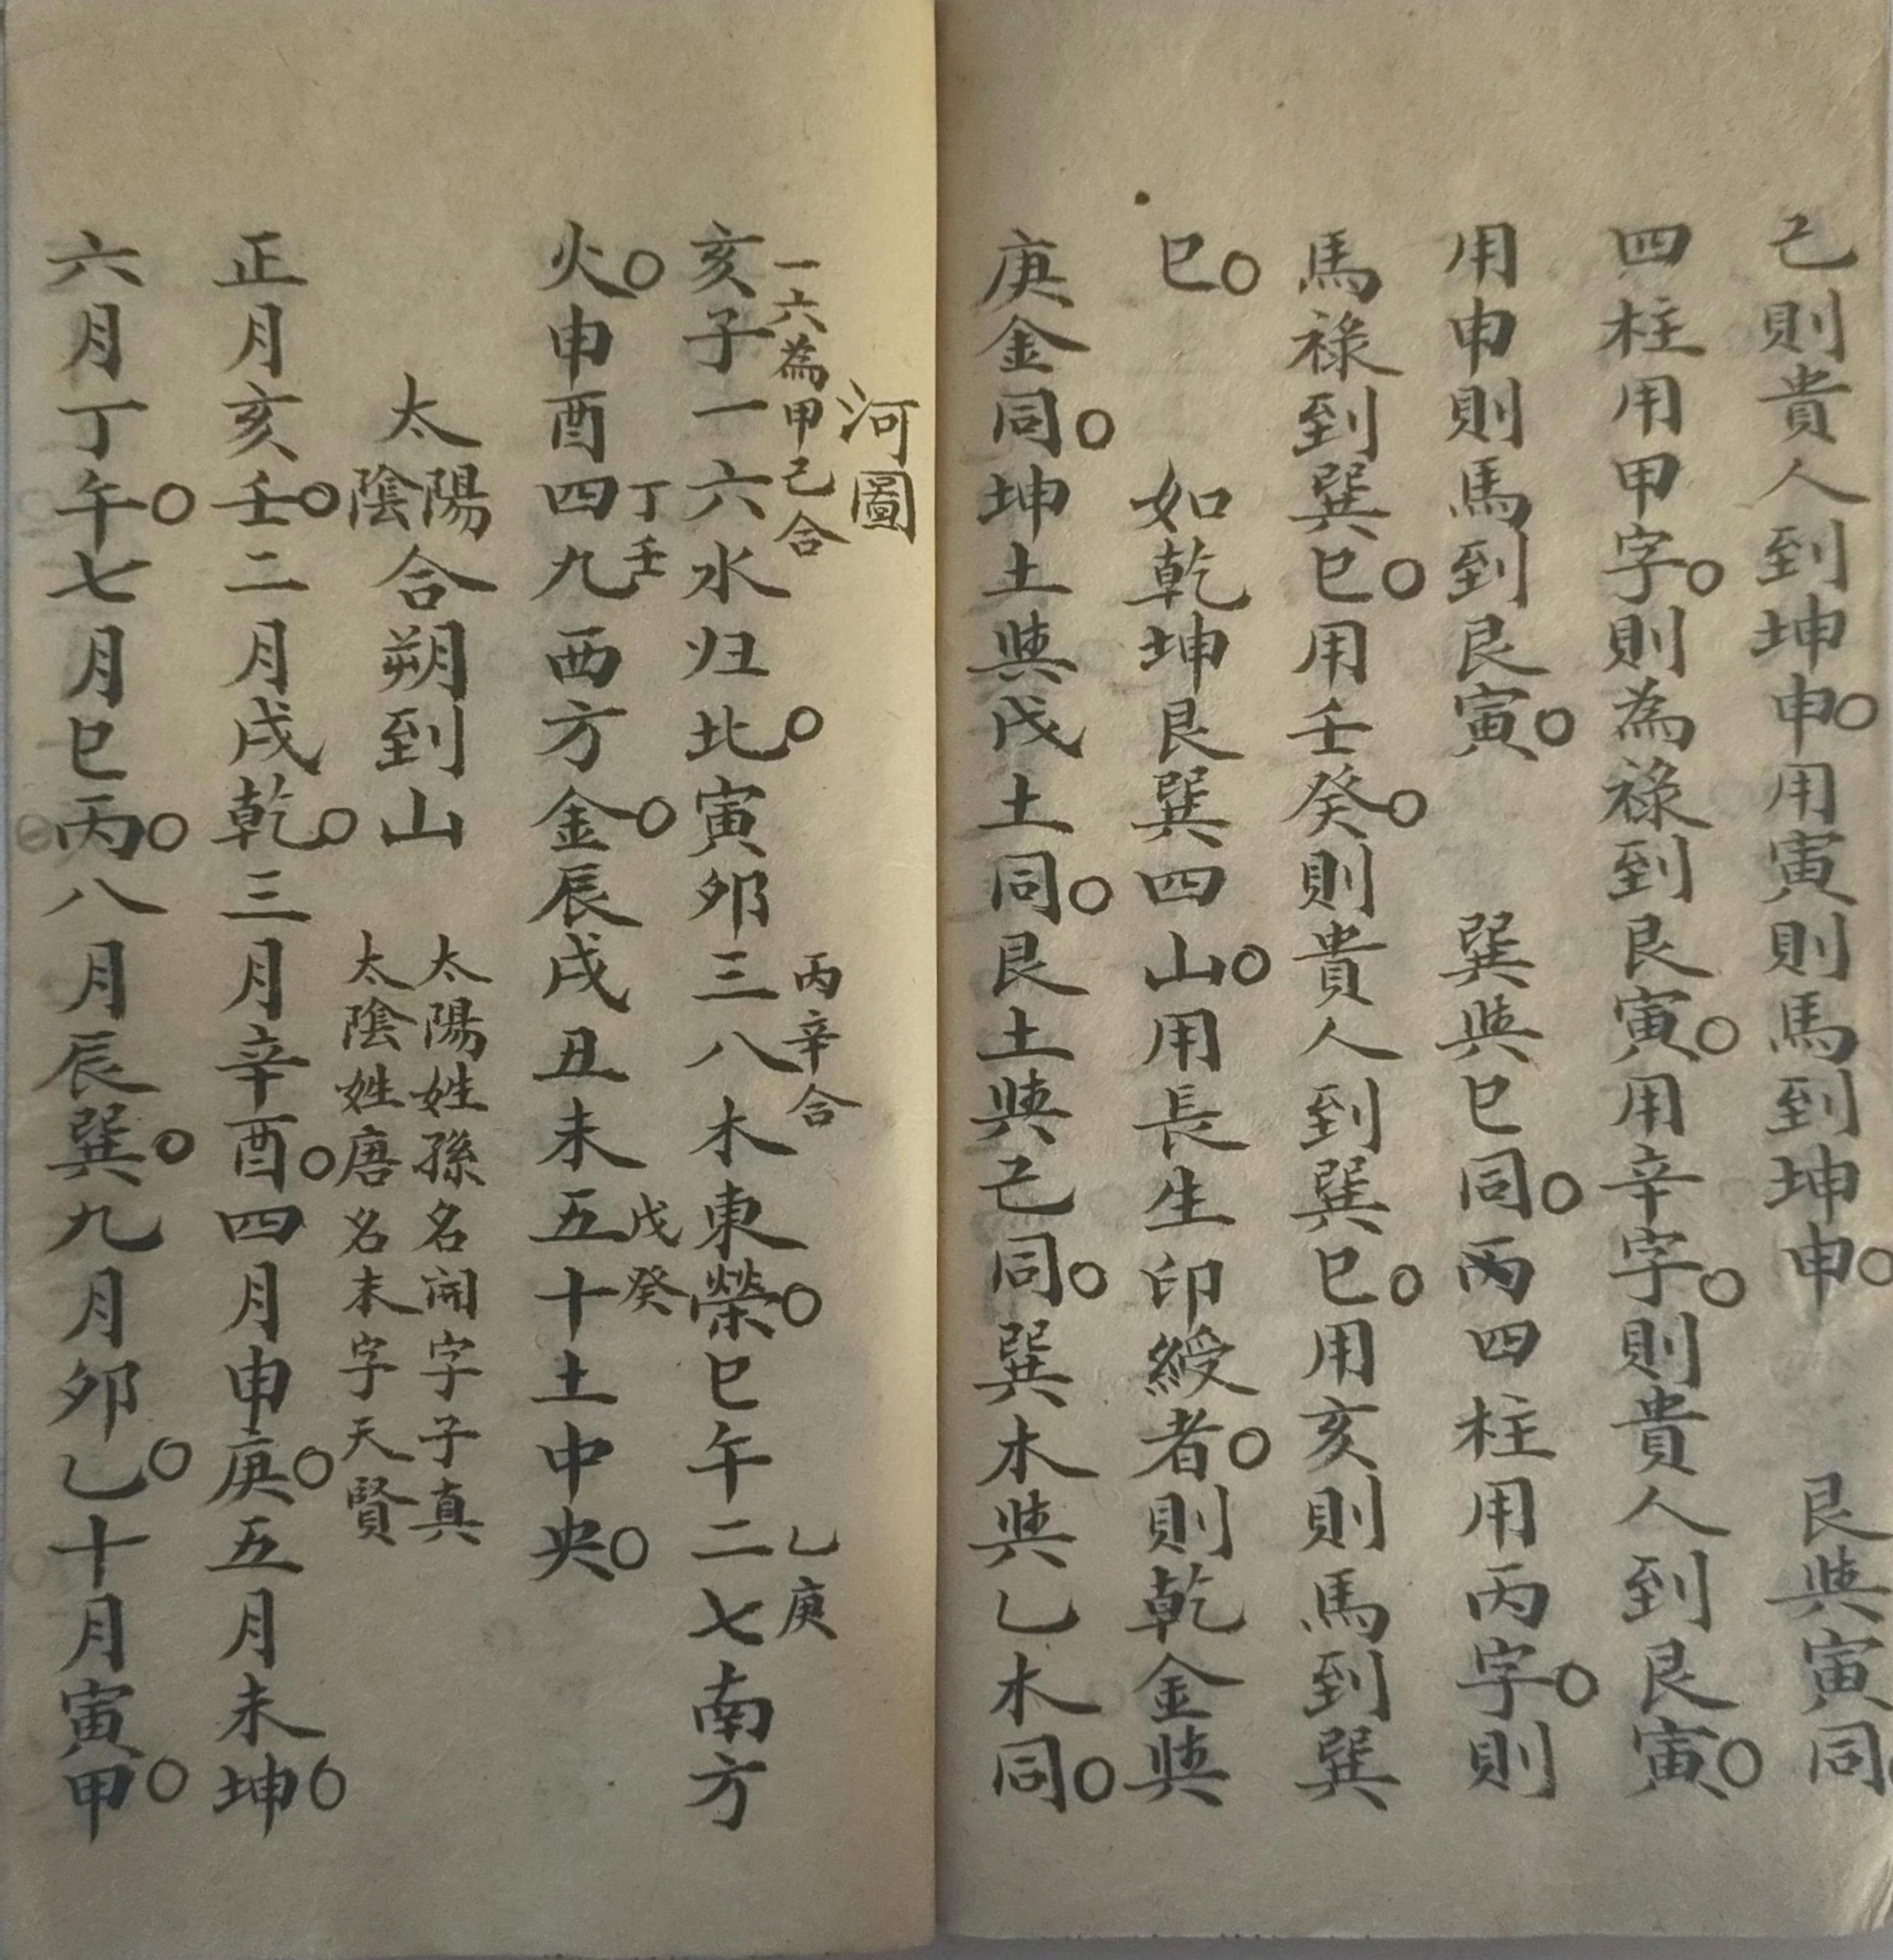 己則貴人到坤申○用寅則馬到坤申○　艮與寅同
四柱用甲字○則為祿到艮寅○用辛字○則貴人到艮寅○
用申則馬到艮寅○　巽與巳同○丙四柱用丙字○則
馬祿到巽巳○用壬癸○則貴人到巽巳○用亥則馬到巽
巳○　如乾坤艮巽四山○用長生印綬者○則乾金與
庚金同○坤土與戊土同○艮土與己同○巽木與乙木同○
河圖
一六為甲己合　丙辛合　乙庚
亥子一六水归北○寅卯三八木東榮○巳午二七南方
丁壬　戊癸
火○申酉四九西方金○辰戌丑未五十土中央○
太陽陰合朔到山
太陽姓孫名開字子真
太陰姓唐名末字天賢
正月亥壬○二月戌乾○三月辛酉○四月申庚○五月未坤○
六月丁午○七月巳丙○八月辰巽○九月卯乙○十月寅甲○